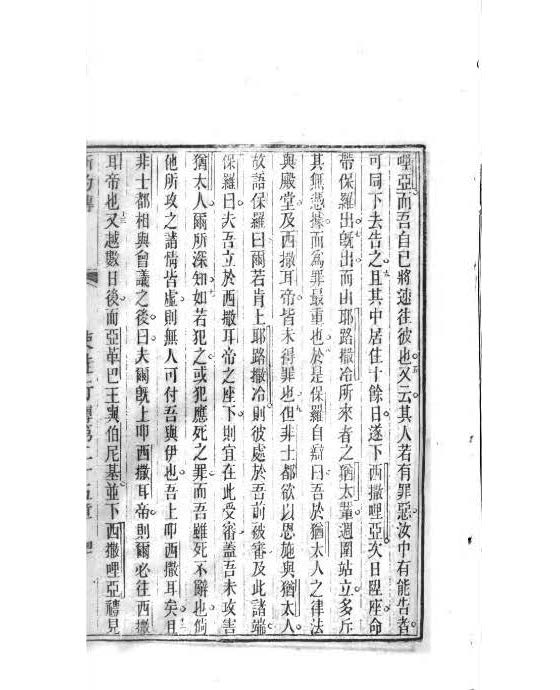 嗶亞而吾自已將速往彼也又云其人若有罪惡汝中有能告者
可同下去告之且其中居住十餘日遂下西撒嗶亞次日陞座命
帶保羅出旣出而由耶路撒冷所來者之猶太輩週圍站立多斥
其無憑據而爲罪最重也於是保羅自辯曰吾於猶太人之律法
與殿堂及西撒耳帝皆未得罪也但非士都欲以恩施與猶太人
故語保羅曰爾若肯上耶路撒冷則彼處於吾前被審及此諸端
保羅曰夫吾立於西撒耳帝之座下則宜在此受審蓋吾未攻害
猶太人爾所深知如若犯之或犯應死之罪而吾雖死不辭也倘
他所攻之諸情皆虛則無人可付吾與伊也吾上叩西撒耳矣且
非士都相與會議之後曰夫爾旣上叩西撒耳帝則爾必往西撒
耳帝也又越數日後而亞革巴王與伯尼基並下西撒嗶亞禮見